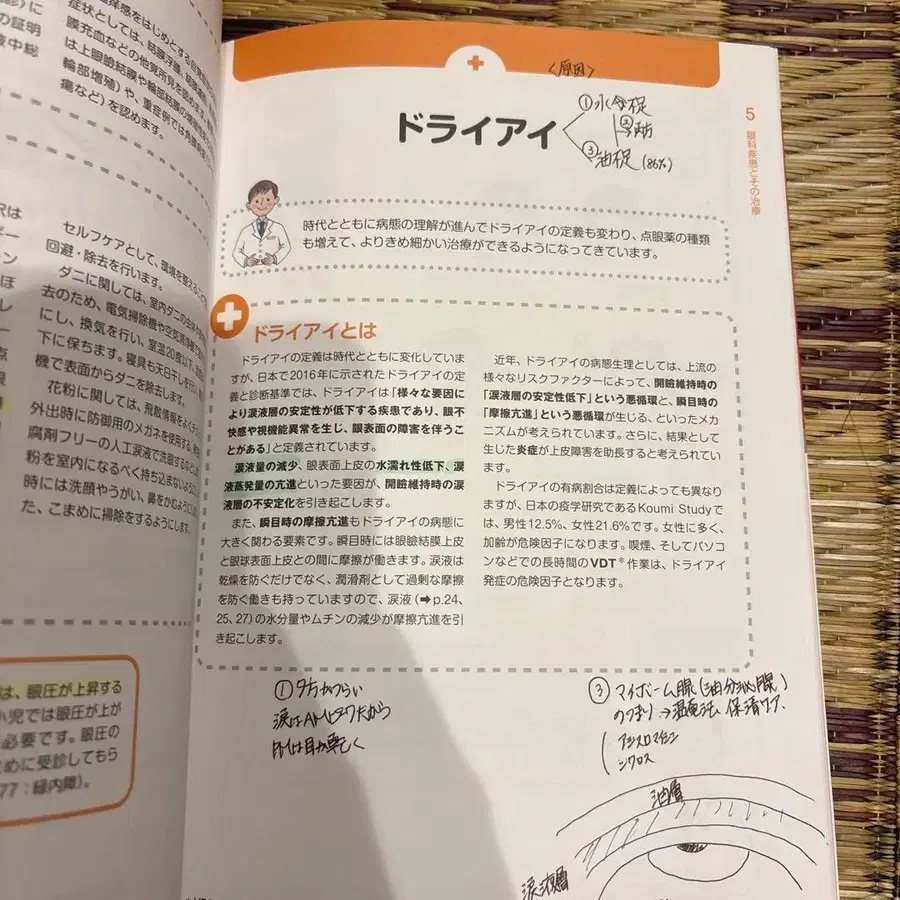 痒感をはじめとする
症状としては、結膜浮腫、結膜
膜充血などの他覚所見を認めます。
は上眼瞼結膜や輪部結膜の
輪部増殖)や、重症例では角膜
瘍など)を認めます。
の証明
液中総
セルフケアとして、環境を整える
回避・除去を行います。
ダニに関しては、室内ダニの
去のため、電気掃除機や空気清浄機
にし、換気を行い、室温20度以下、
下に保ちます。寝具も天日干しを行い、
機で表面からダニを除去します。
花粉に関しては、飛散情報をよく
外出時に防御用のメガネを使用する、
腐剤フリーの人工涙液で洗眼する
粉を室内になるべく持ち込まないように
時には洗顔やうがい、鼻をかむように
た、こまめに掃除をするようにします。
は、眼圧が上昇する
小児では眼圧が上が
必要です。眼圧の
ために受診してもら
77:緑内障)。
<原因>
ドライアイ
①水分不足
②両方
③油不足(86%)
5
眼科疾患とその治療
時代とともに病態の理解が進んでドライアイの定義も変わり、点眼薬の種類
も増えて、よりきめ細かい治療ができるようになってきています。
ドライアイとは
ドライアイの定義は時代とともに変化していま
すが、日本で2016年に示されたドライアイの定
義と診断基準では、ドライアイは「様々な要因に
より涙液層の安定性が低下する疾患であり、眼不
快感や視機能異常を生じ、眼表面の障害を伴うこ
とがある」と定義されています。
涙液量の減少、眼表面上皮の水濡れ性低下、涙
液蒸発量の亢進といった要因が、開瞼維持時の涙
液層の不安定化を引き起こします。
また、瞬目時の摩擦亢進もドライアイの病態に
大きく関わる要素です。瞬目時には眼瞼結膜上皮
と眼球表面上皮との間に摩擦が働きます。涙液は
乾燥を防ぐだけでなく、潤滑剤として過剰な摩擦
を防ぐ働きも持っていますので、涙液(➡p.24、
25、27)の水分量やムチンの減少が摩擦亢進を引
き起こします。
近年、ドライアイの病態生理としては、上流の
様々なリスクファクターによって、開瞼維持時の
「涙液層の安定性低下」という悪循環と、瞬目時の
「摩擦亢進」という悪循環が生じる、といったメカ
ニズムが考えられています。さらに、結果として
生じた炎症が上皮障害を助長すると考えられてい
ます。
ドライアイの有病割合は定義によっても異なり
ますが、日本の疫学研究であるKoumi Studyで
は、男性12.5%、女性21.6%です。女性に多く、
加齢が危険因子になります。喫煙、そしてパソコ
ンなどでの長時間のVDT*作業は、ドライアイ
発症の危険因子となります。
①夕方がつらい
涙はAMにピークだから
PMは目が乾く
③マイボーム腺(油分泌腺)
のつまり→温罨法、保清ケア
アジスロマイシン
ジクロス
油層
涙液層